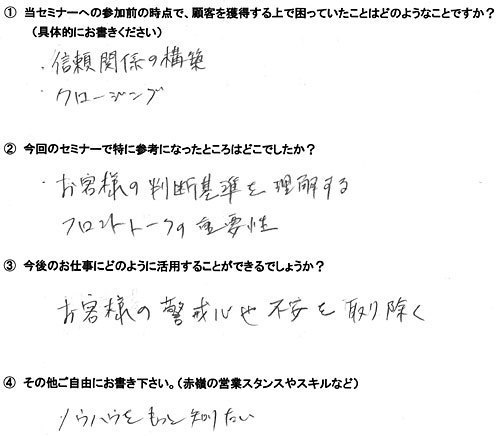 ① 当セミナーへの参加前の時点で、顧客を獲得する上で困っていたことはどのようなことですか？
（具体的にお書きください）
・信頼関係の構築
・クロージング
② 今回のセミナーで特に参考になったところはどこでしたか？
・お客様の判断基準を理解する
フロントトークの重要性
③ 今後のお仕事にどのように活用することができるでしょうか？
お客様の警戒心や不安を取り除く
④ その他ご自由にお書き下さい。（赤嶺の営業スタンスやスキルなど）
ノウハウをもっと知りたい